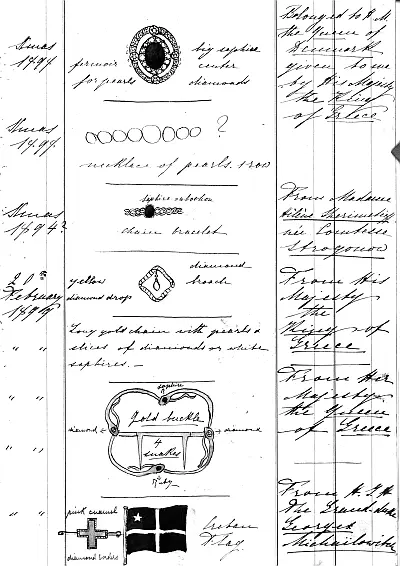 Xmas
1894
fermoir
for pearls
big saphire
center
diamonds
Belonged to H M
the Queen of
Denmark
given to me
by His Majesty
the King
of Greece
Xmas
1894
?
necklace of pearls. 1 row
Xmas
1894?
saphire cabochon
chain bracelet
From Madame
née Comtesse
Strogonow
20th
February
yellow
diamond drops
diamond
brooch
From His
Majesty
the
King of
Greece
" "
Long gold chain with pearls &
slices of diamonds or white
saphires. —
" "
saphire
gold buckle
diamond
diamond
4
snakes
Ruby
From Her
Majesty
the Queen
of Greece
" "
" "
pink enamel
diamond borders
Cretan
Flag
From H. I. H.
The Grand duke
Georges
Michailowitch